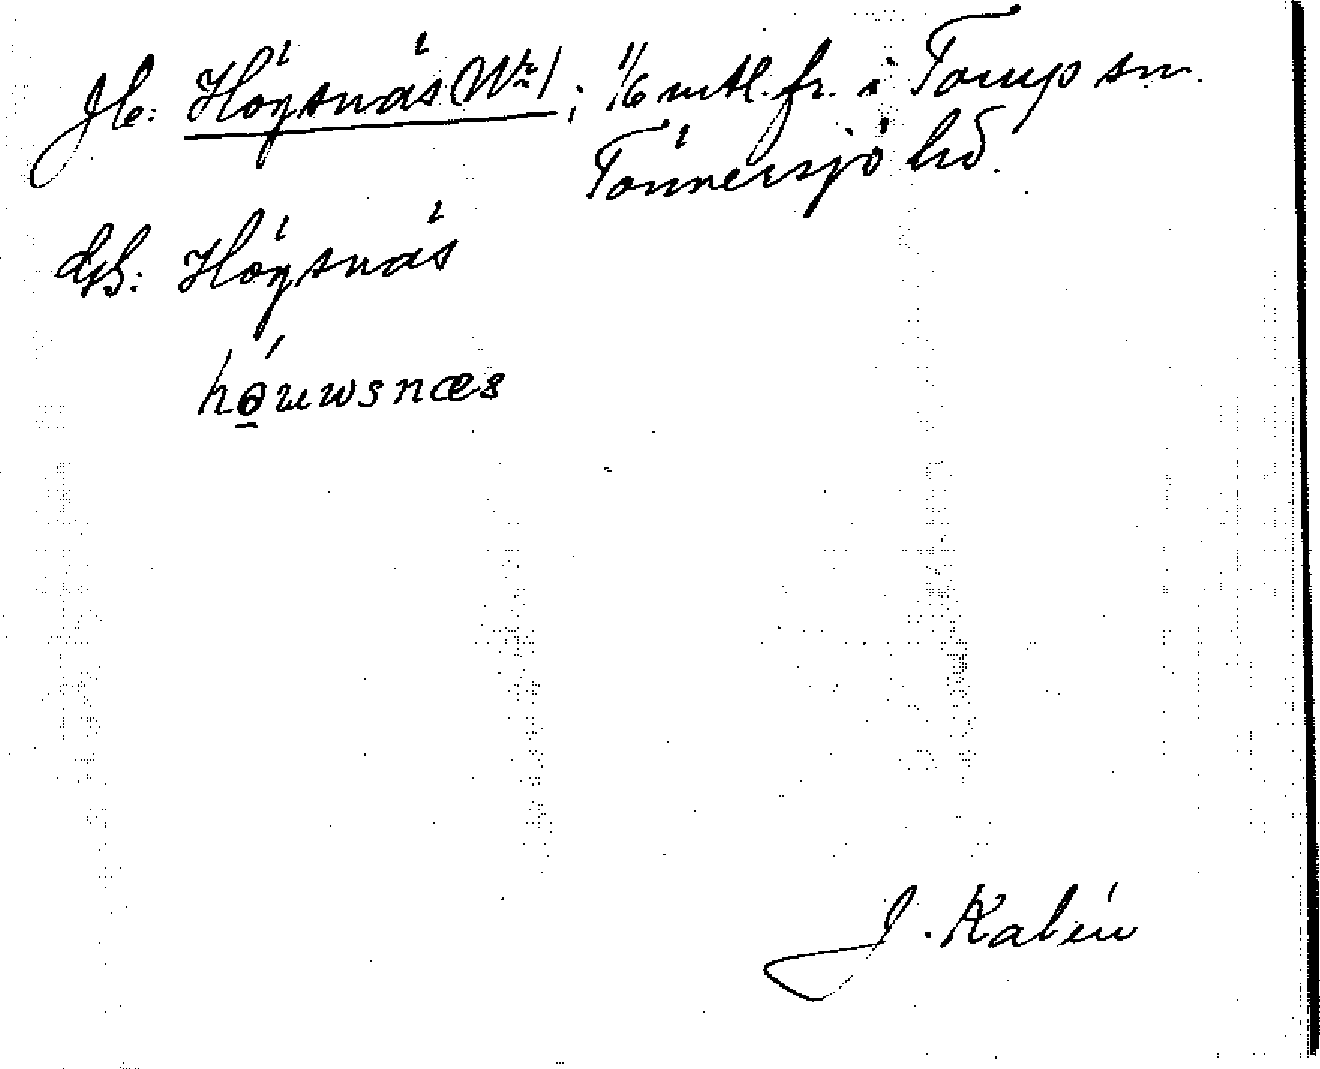 Jb: Högsnäs (Nr 1; 1/6 mtl. fr. i Torup sn.
Tönnersjö hd.
GS: Högsnäs
hǫ́uwsnæs
J. Kalén